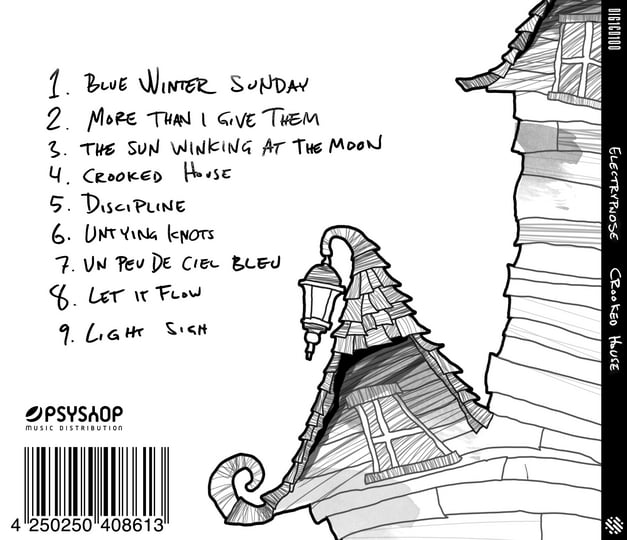 1. BLUE WINTER SUNDAY
2. MORE THAN I GIVE THEM
3. THE SUN WINKING AT THE MOON
4. CROOKED HOUSE
5. DISCIPLINE
6. UNTYING KNOTS
7. UN PEU DE CIEL BLEU
8. LET IT FLOW
9. LIGHT SIGH
PSYSHOP
MUSIC DISTRIBUTION
4 250250 408613
DIG1CD100
ELECTRYPNOSE CROOKED HOUSE